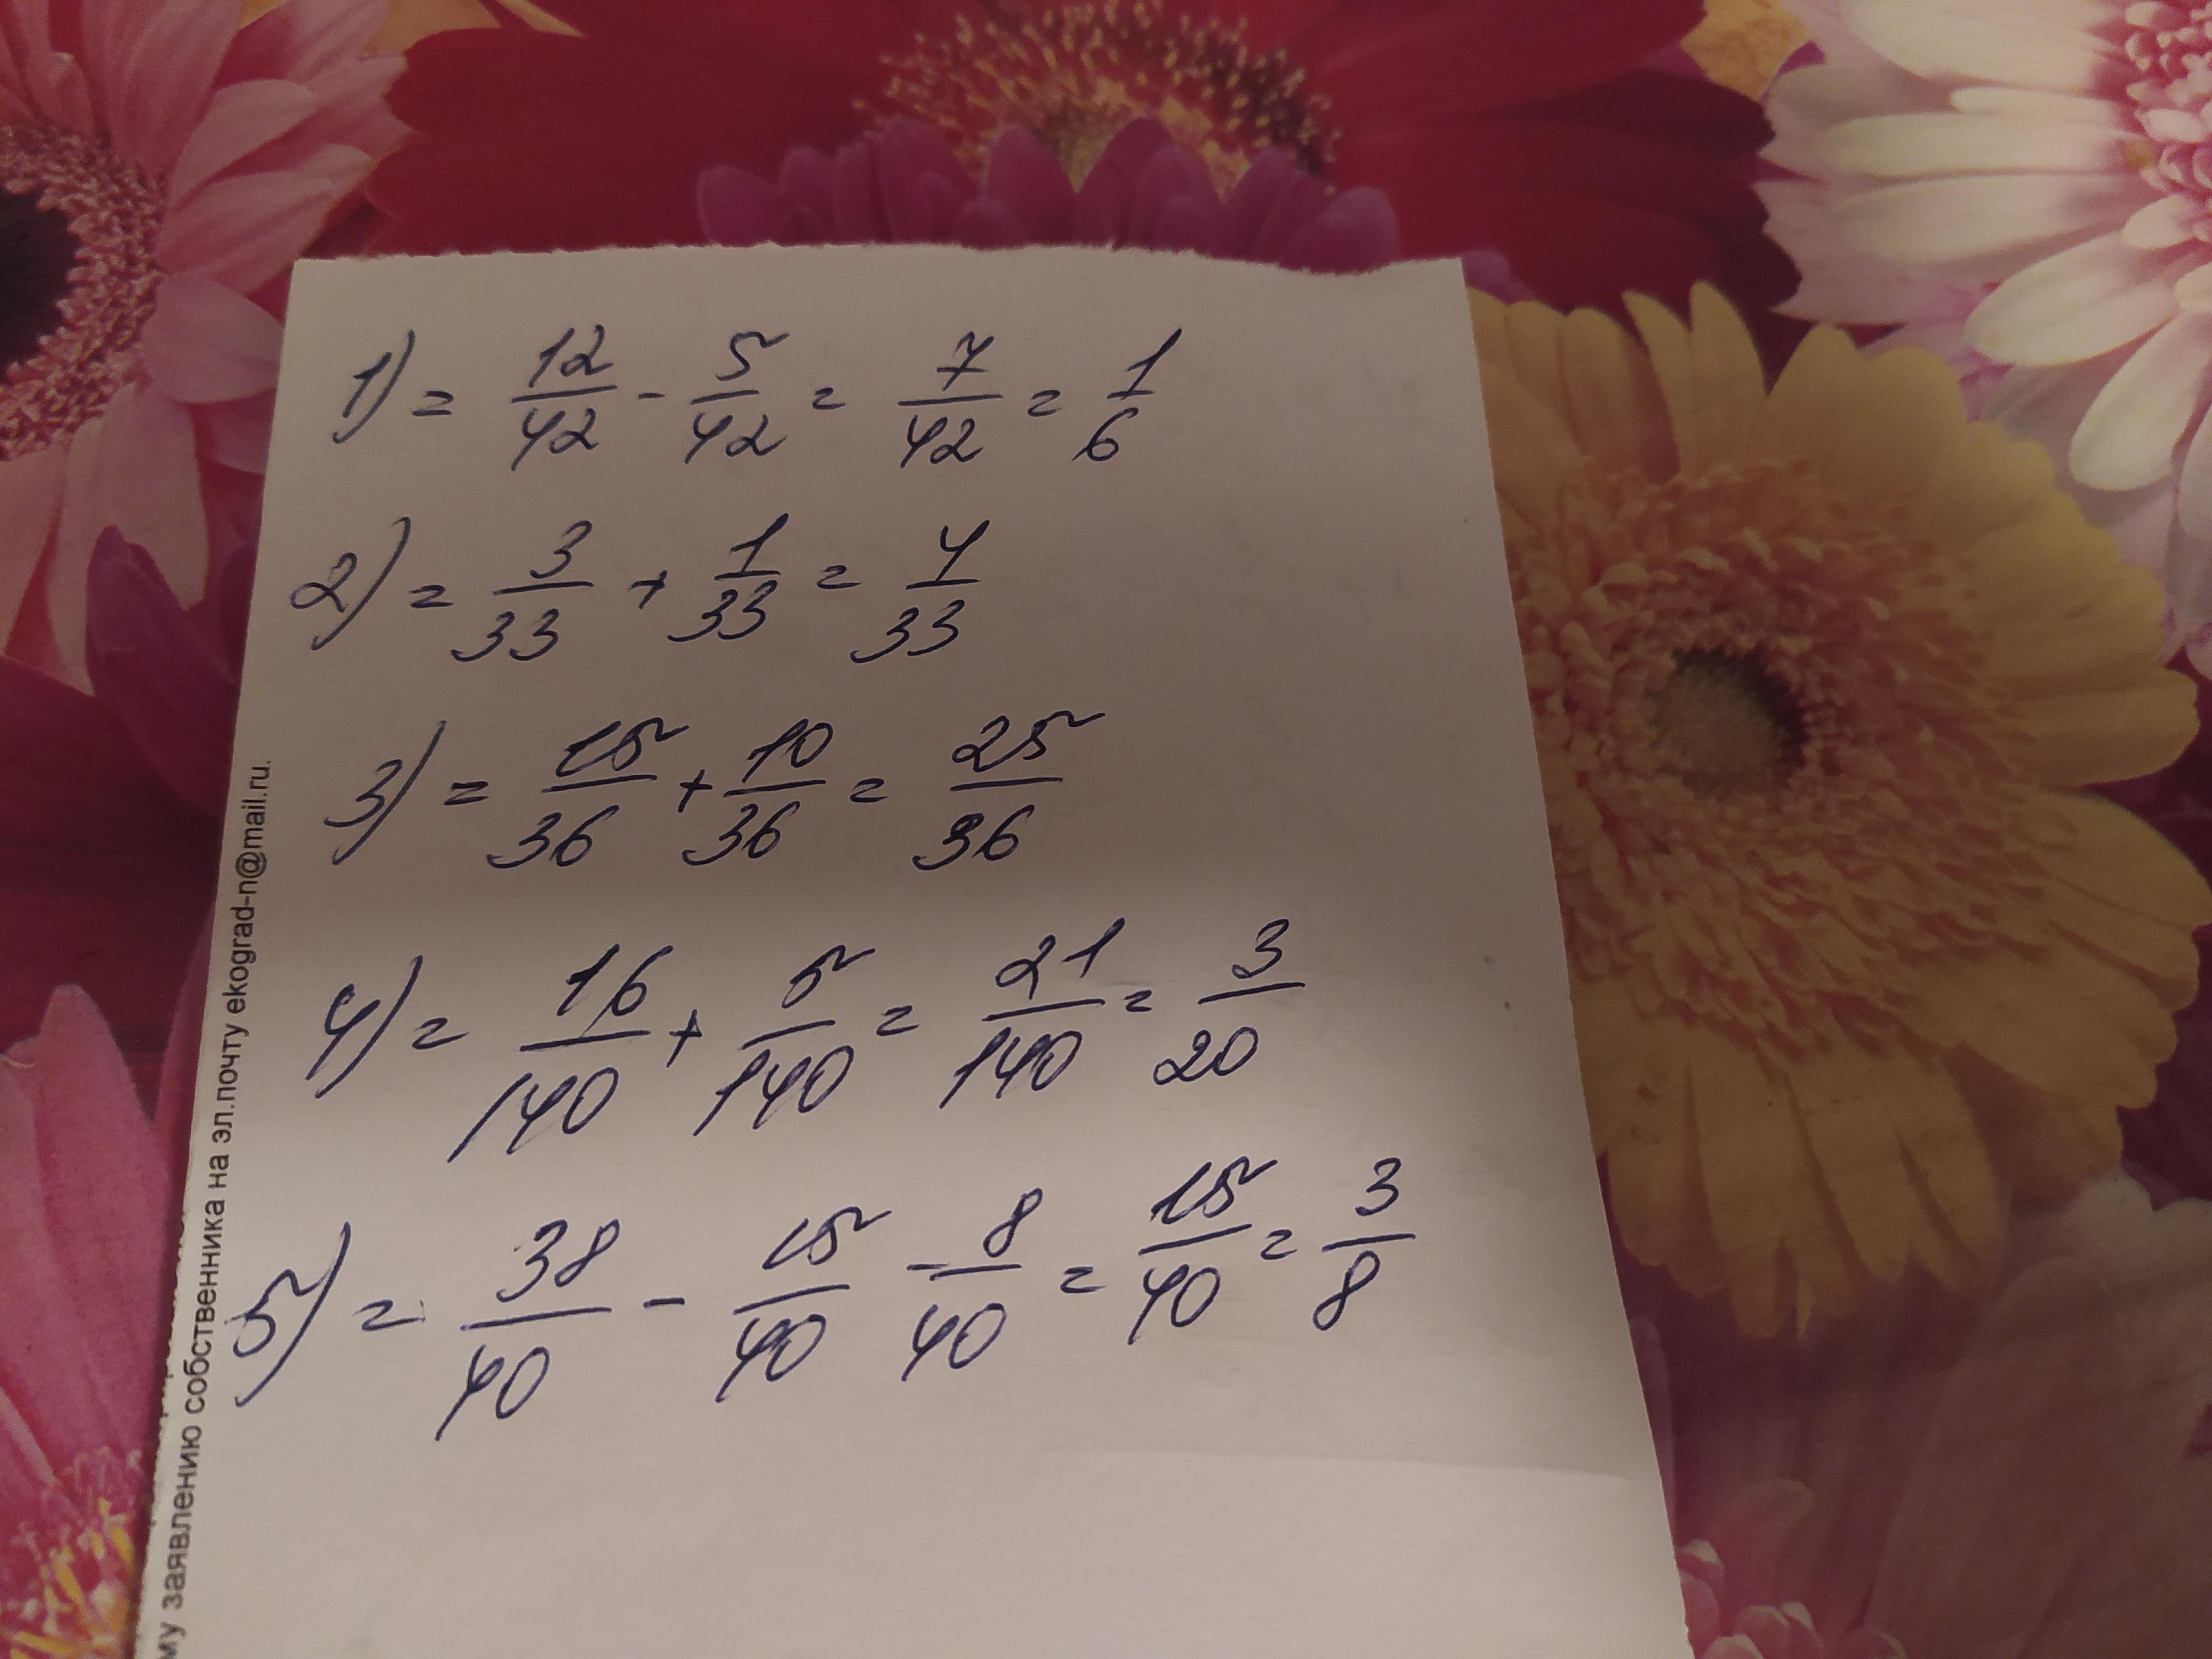 1) = 12/42 - 5/42 = 7/42 = 1/6
2) = 3/33 + 1/33 = 4/33
3) = 15/36 + 10/36 = 25/36
4) = 16/140 + 5/140 = 21/140 = 3/20
5) = 38/40 - 15/40 - 8/40 = 15/40 = 3/8
му заявлению собственника на эл.почту ekograd-n@mail.ru.